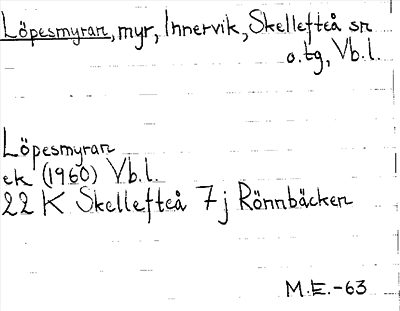 Löpesmyran, myr, Innervik, Skellefteå sn
o.tg, Vb.l.
Löpesmyran
ek (1960) Vb.l.
22 K Skellefteå 7j Rönnbäcken
M.E.-63